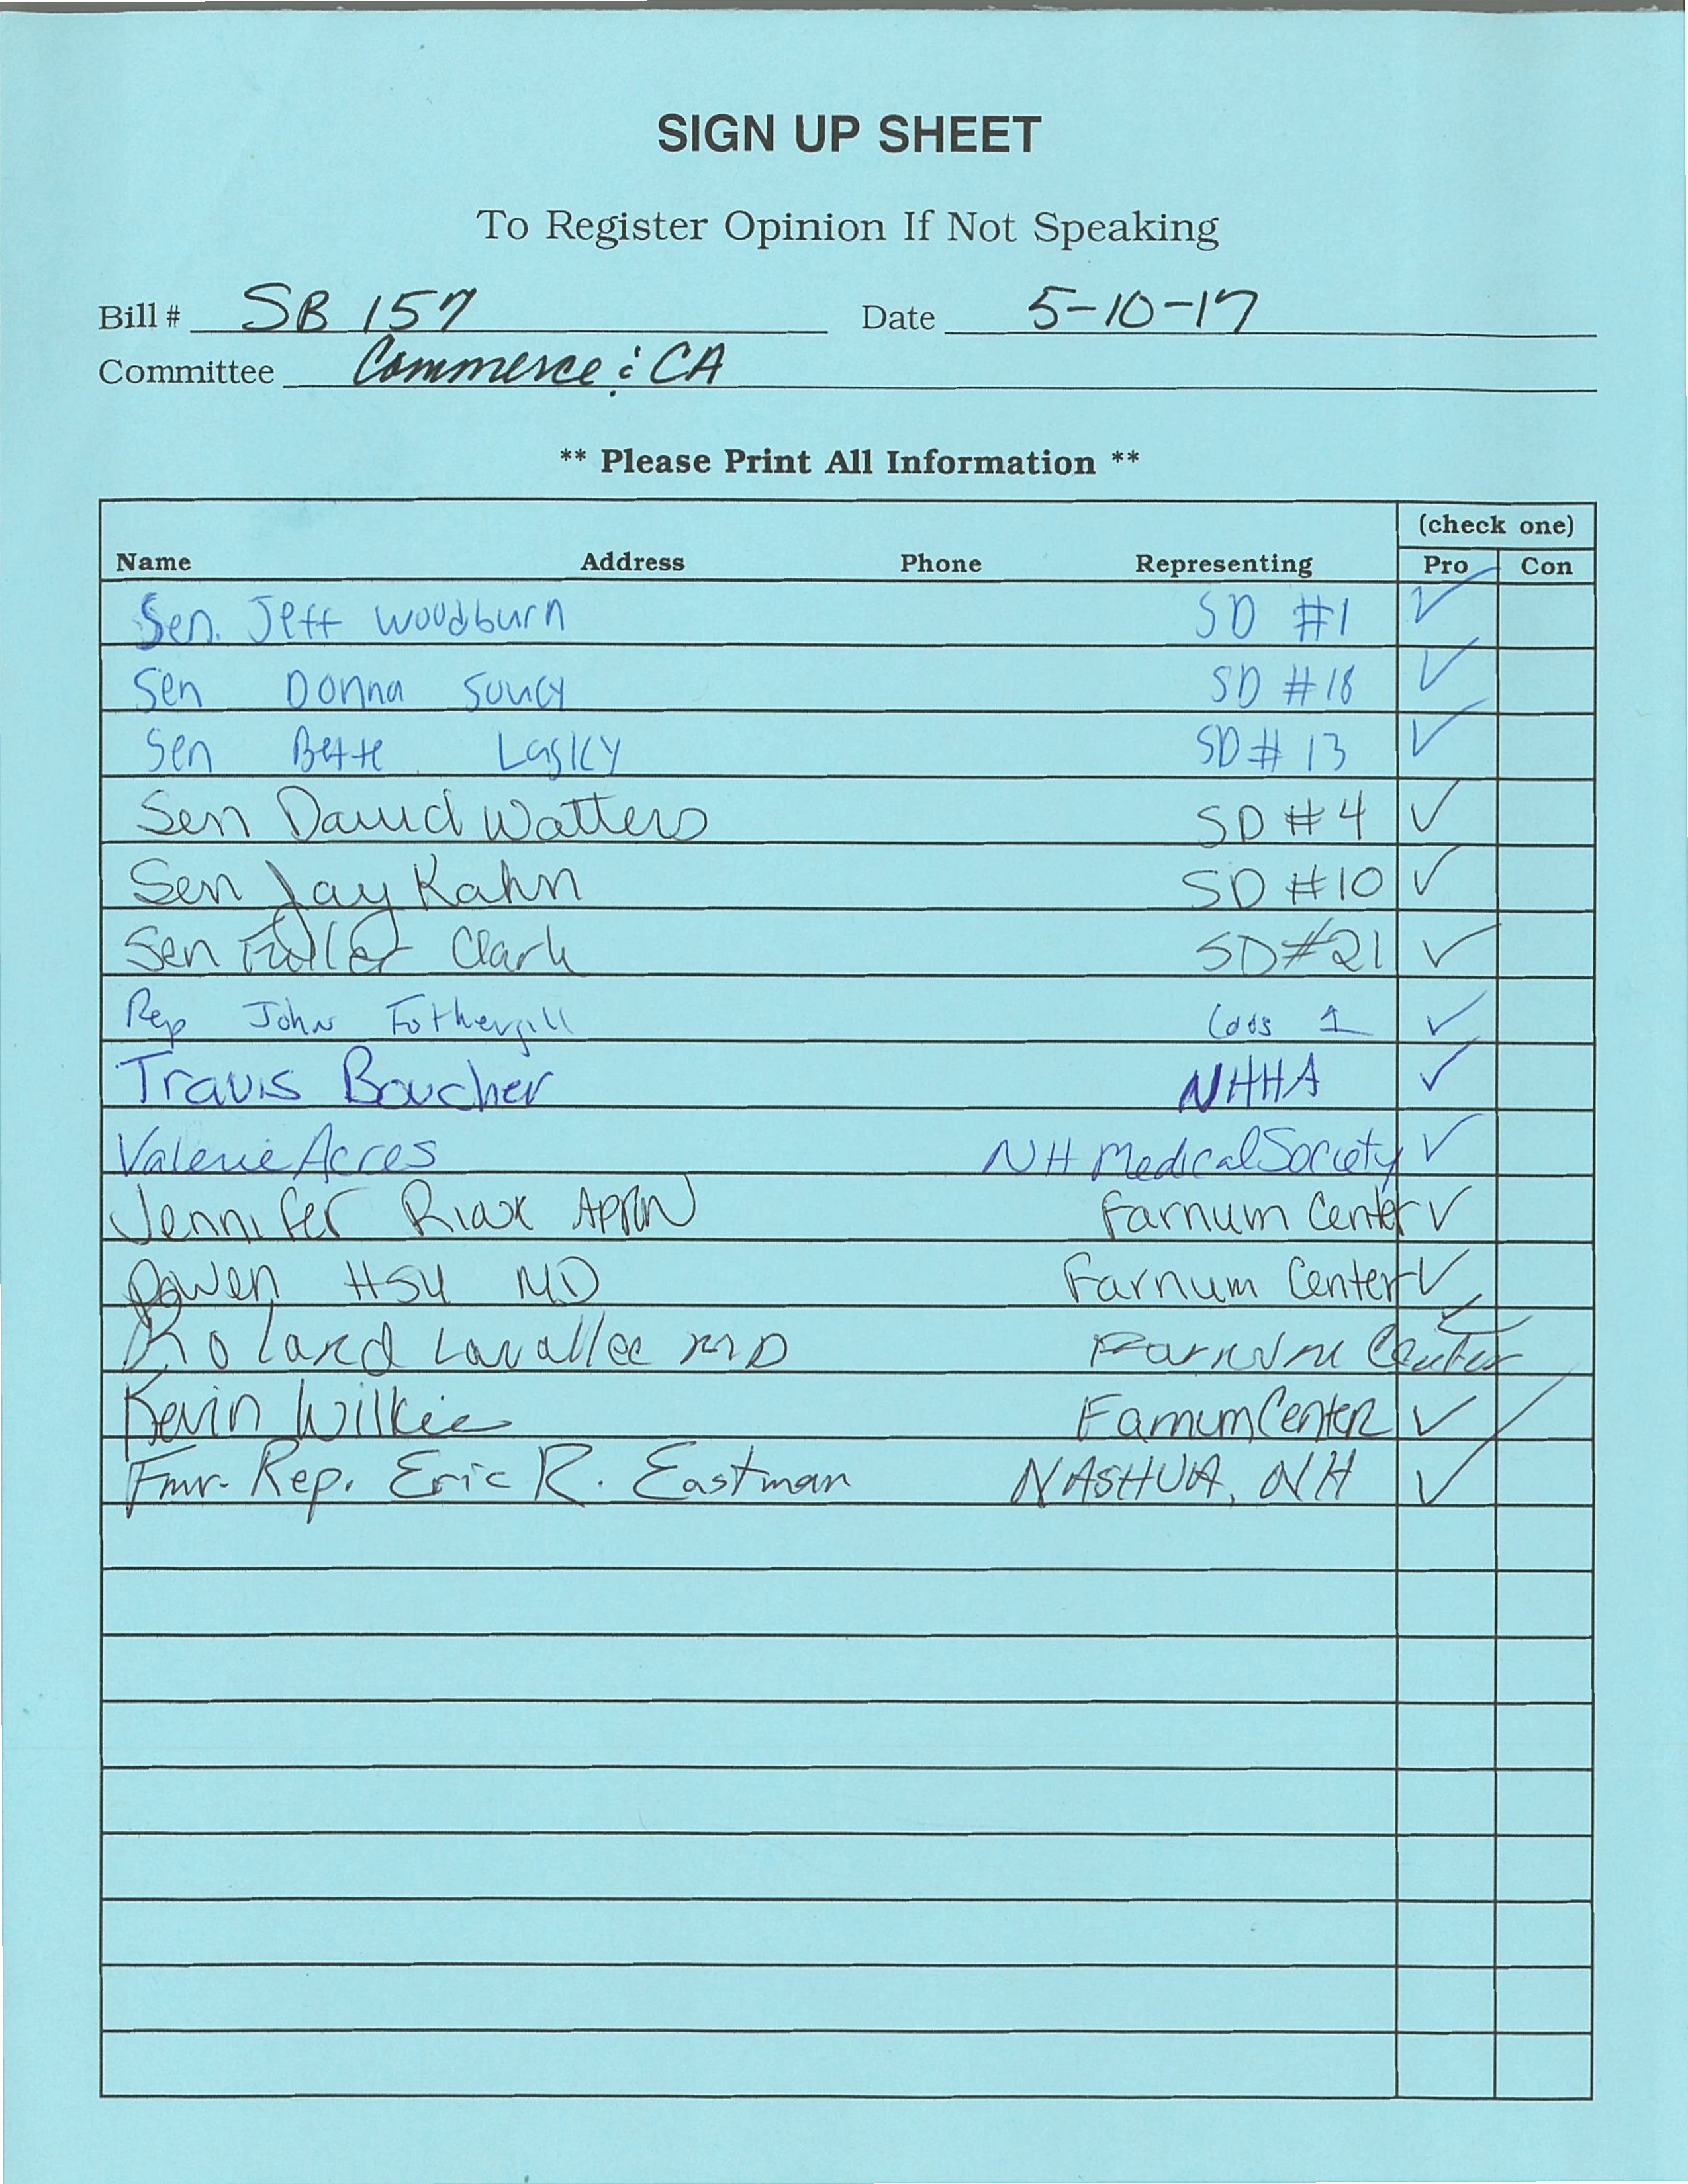 SIGN UP SHEET
To Register Opinion If Not Speaking
Bill # SB 157 Date 5-10-17
Committee Commerce & CA
** Please Print All Information **
(check one)
Name Address Phone Representing Pro Con
Sen. Jeff Woodburn SD #1 ✓
Sen Donna Soucy SD #18 ✓
Sen Bette Lasky SD # 13 ✓
Sen David Watters SD #4 ✓
Sen Jay Kahn SD #10 ✓
Sen Fuller Clark SD #21 ✓
Rep John Fothergill Coos 1 ✓
Travis Boucher NHHA ✓
Valerie Acres NH Medical Society ✓
Jennifer Riax APRN Farnum Center ✓
Hsu MD Farnum Center ✓
Roland Lavallee MD Farnum Center ✓
Kevin Wilkie Farnum Center ✓
Fmr. Rep. Eric R. Eastman NASHUA, NH ✓